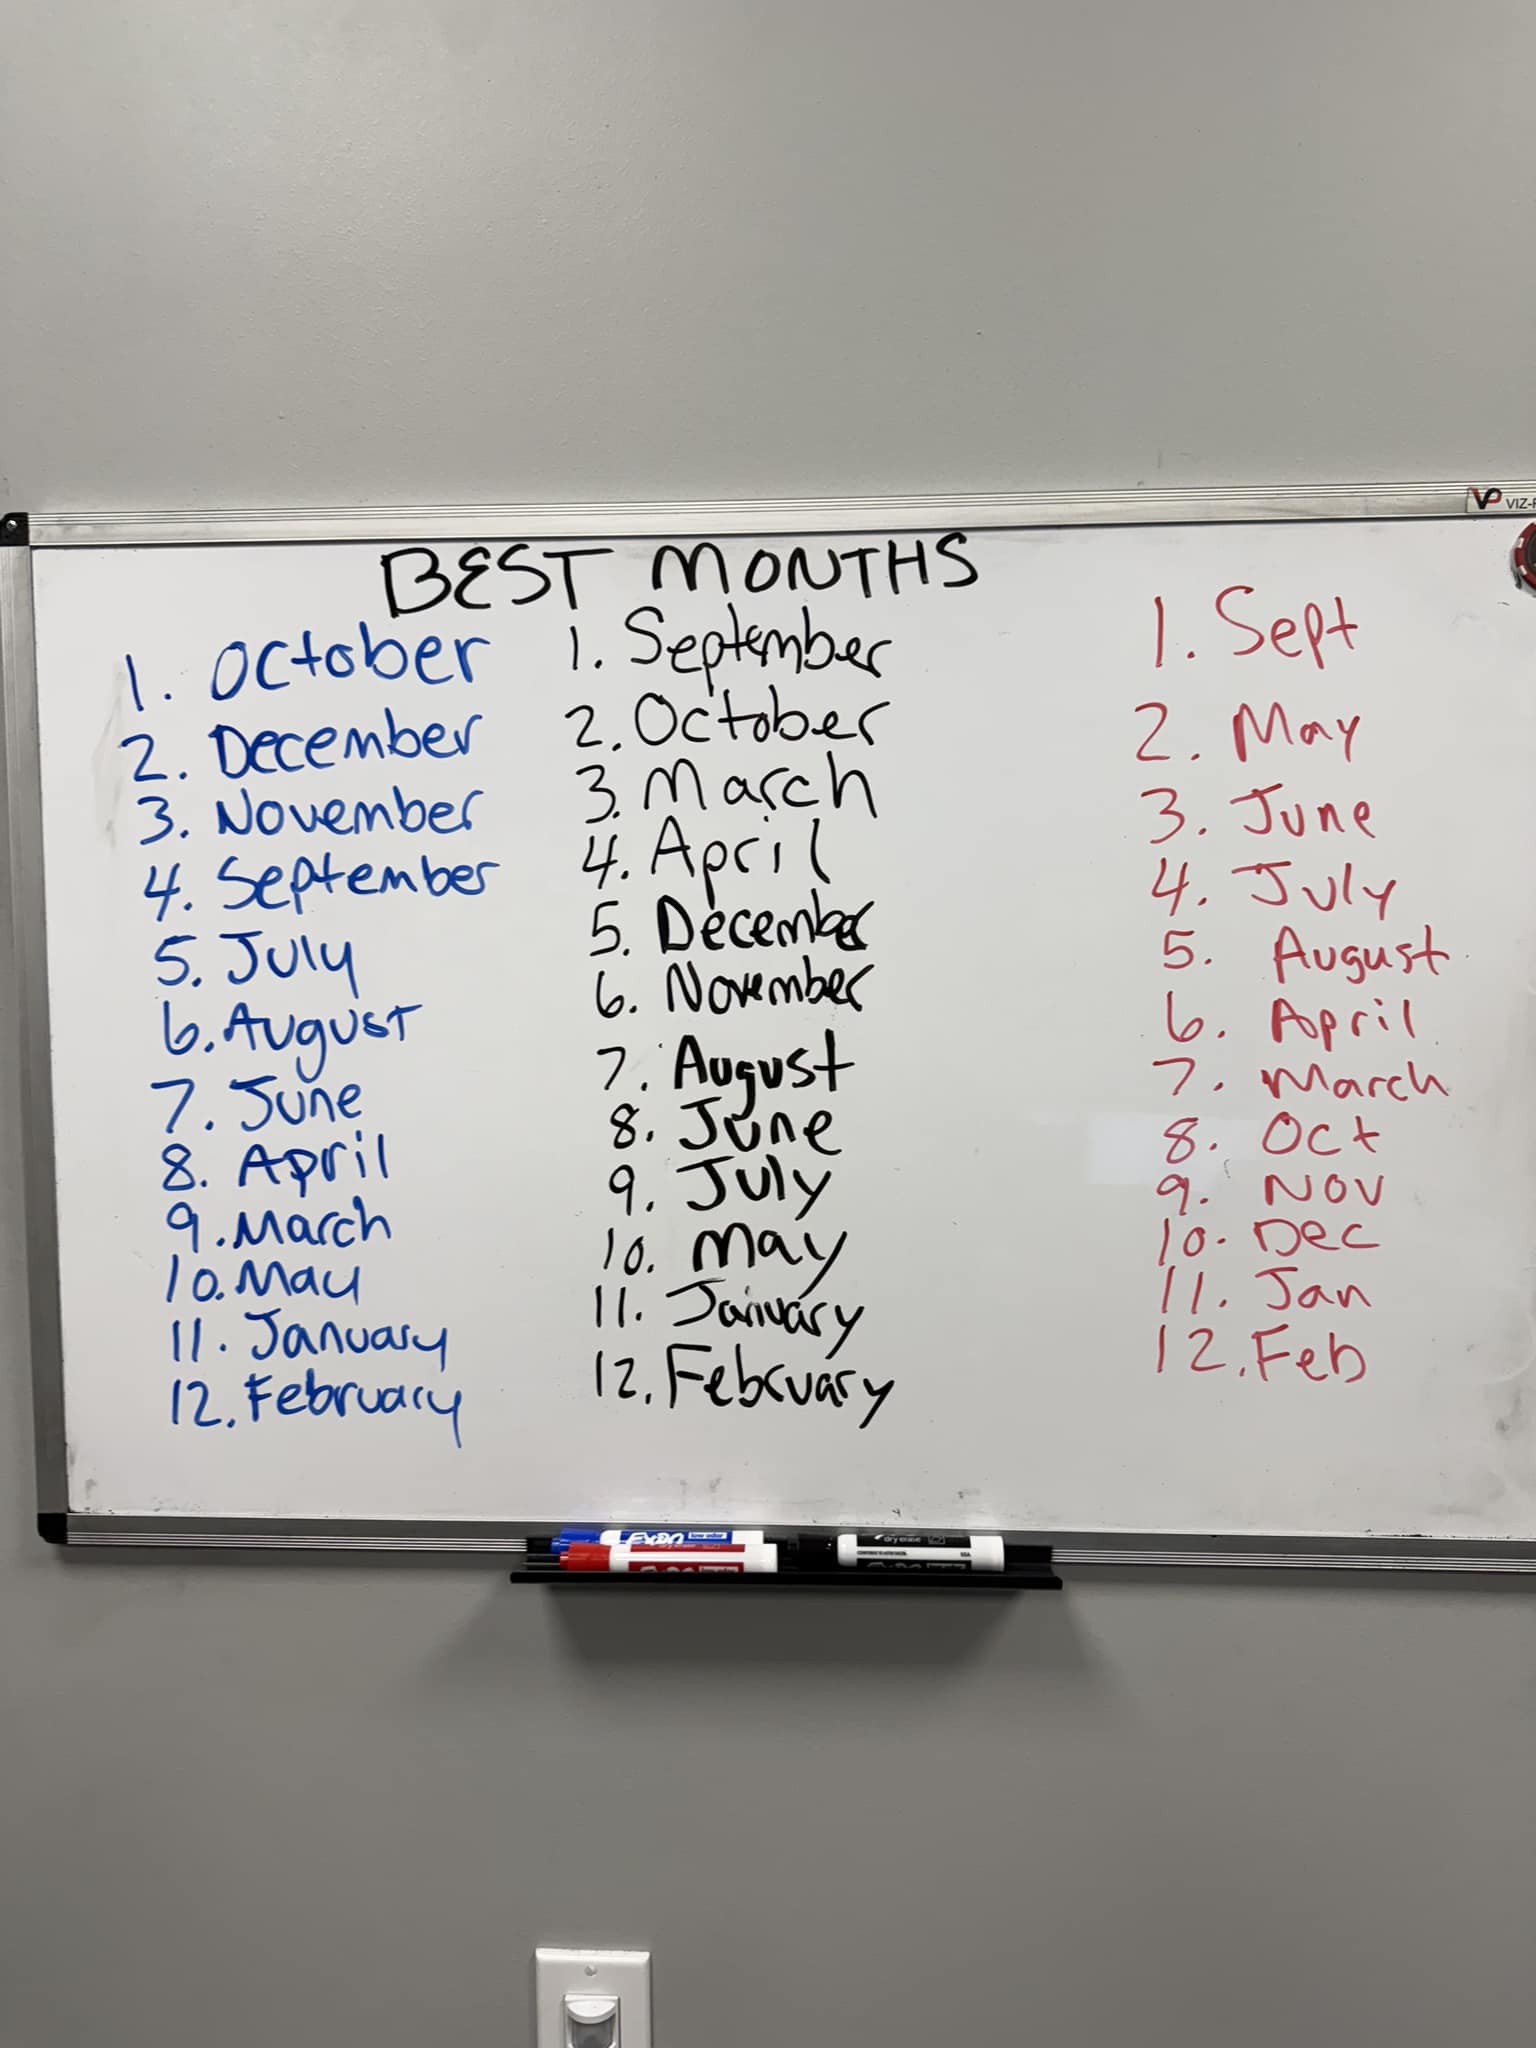 VP VIZ-P
BEST MONTHS
1. October
2. December
3. November
4. September
5. July
6. August
7. June
8. April
9. March
10. May
11. January
12. February
1. September
2. October
3. March
4. April
5. December
6. November
7. August
8. June
9. July
10. May
11. January
12. February
1. Sept
2. May
3. June
4. July
5. August
6. April
7. March
8. Oct
9. Nov
10. Dec
11. Jan
12. Feb
EXPO low odor
dry erase